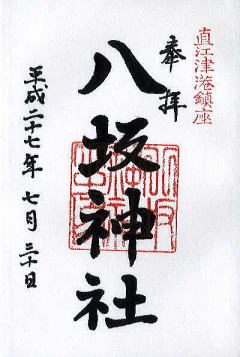 直江津港鎮座
奉拝
八坂神社
平成二十七年 七月 三十日